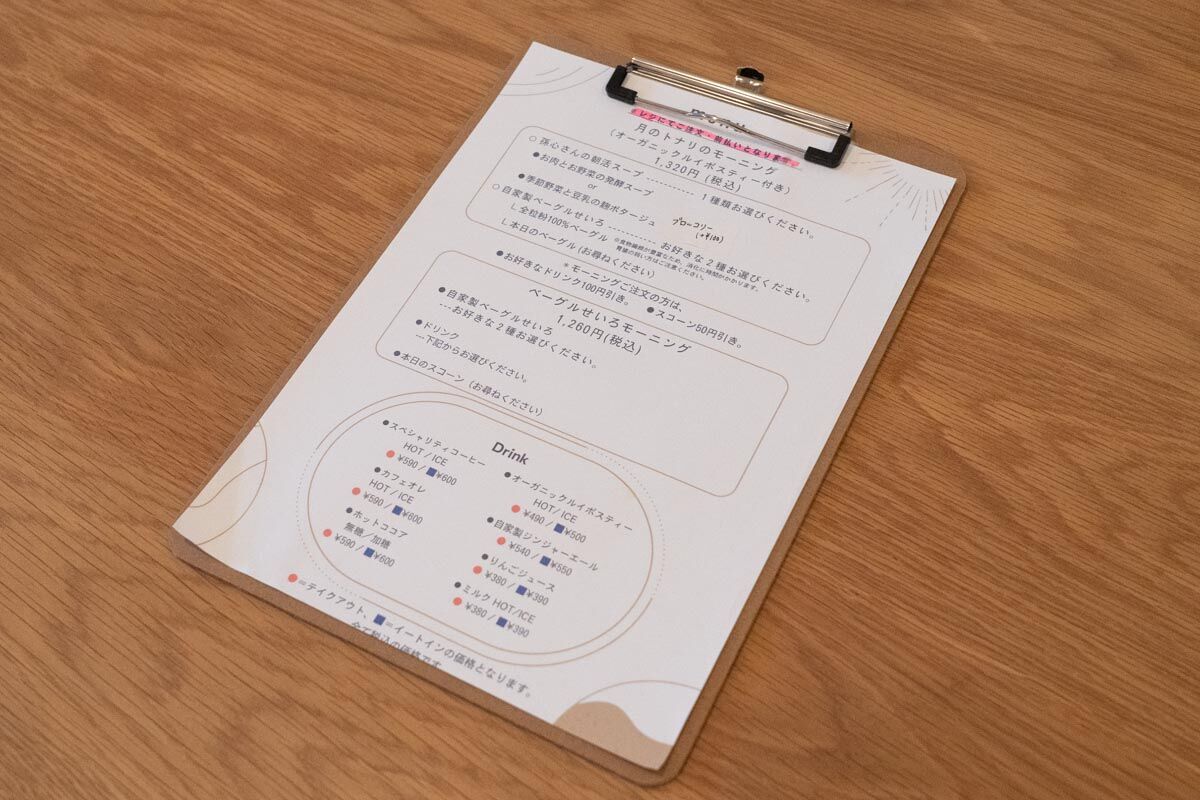 レジにてご注文・前払いとなります
月のトナリのモーニング
(オーガニックルイボスティー付き)
1,320円 (税込)
○ 孫心さんの朝活スープ ------------ 1種類お選びください。
●お肉とお野菜の発酵スープ
or
●季節野菜と豆乳の麹ポタージュ
ブロッコリー
(+¥100)
○ 自家製ベーグルせいろ ------------ お好きな2種お選びください。
∟全粒粉100%ベーグル
※食物繊維が豊富なため、消化に時間がかかります。
胃腸の弱い方はご注意ください。
∟本日のベーグル (お尋ねください)
＊モーニングご注文の方は、
●お好きなドリンク100円引き。 ●スコーン50円引き。
ベーグルせいろモーニング
1,260円(税込)
●自家製ベーグルせいろ
---お好きな2種お選びください。
●ドリンク
---下記からお選びください。
●本日のスコーン (お尋ねください)
Drink
●スペシャリティコーヒー
HOT / ICE
●¥590 / ■¥600
●カフェオレ
HOT / ICE
●¥590 / ■¥600
●ホットココア
無糖／加糖
●¥590 / ■¥600
●オーガニックルイボスティー
HOT/ ICE
●¥490 / ■¥500
●自家製ジンジャーエール
●¥540 / ■¥550
●りんごジュース
●¥380 / ■¥390
●ミルク HOT/ICE
●¥380 / ■¥390
●＝テイクアウト、■＝イートインの価格となります。
全て税込の価格です